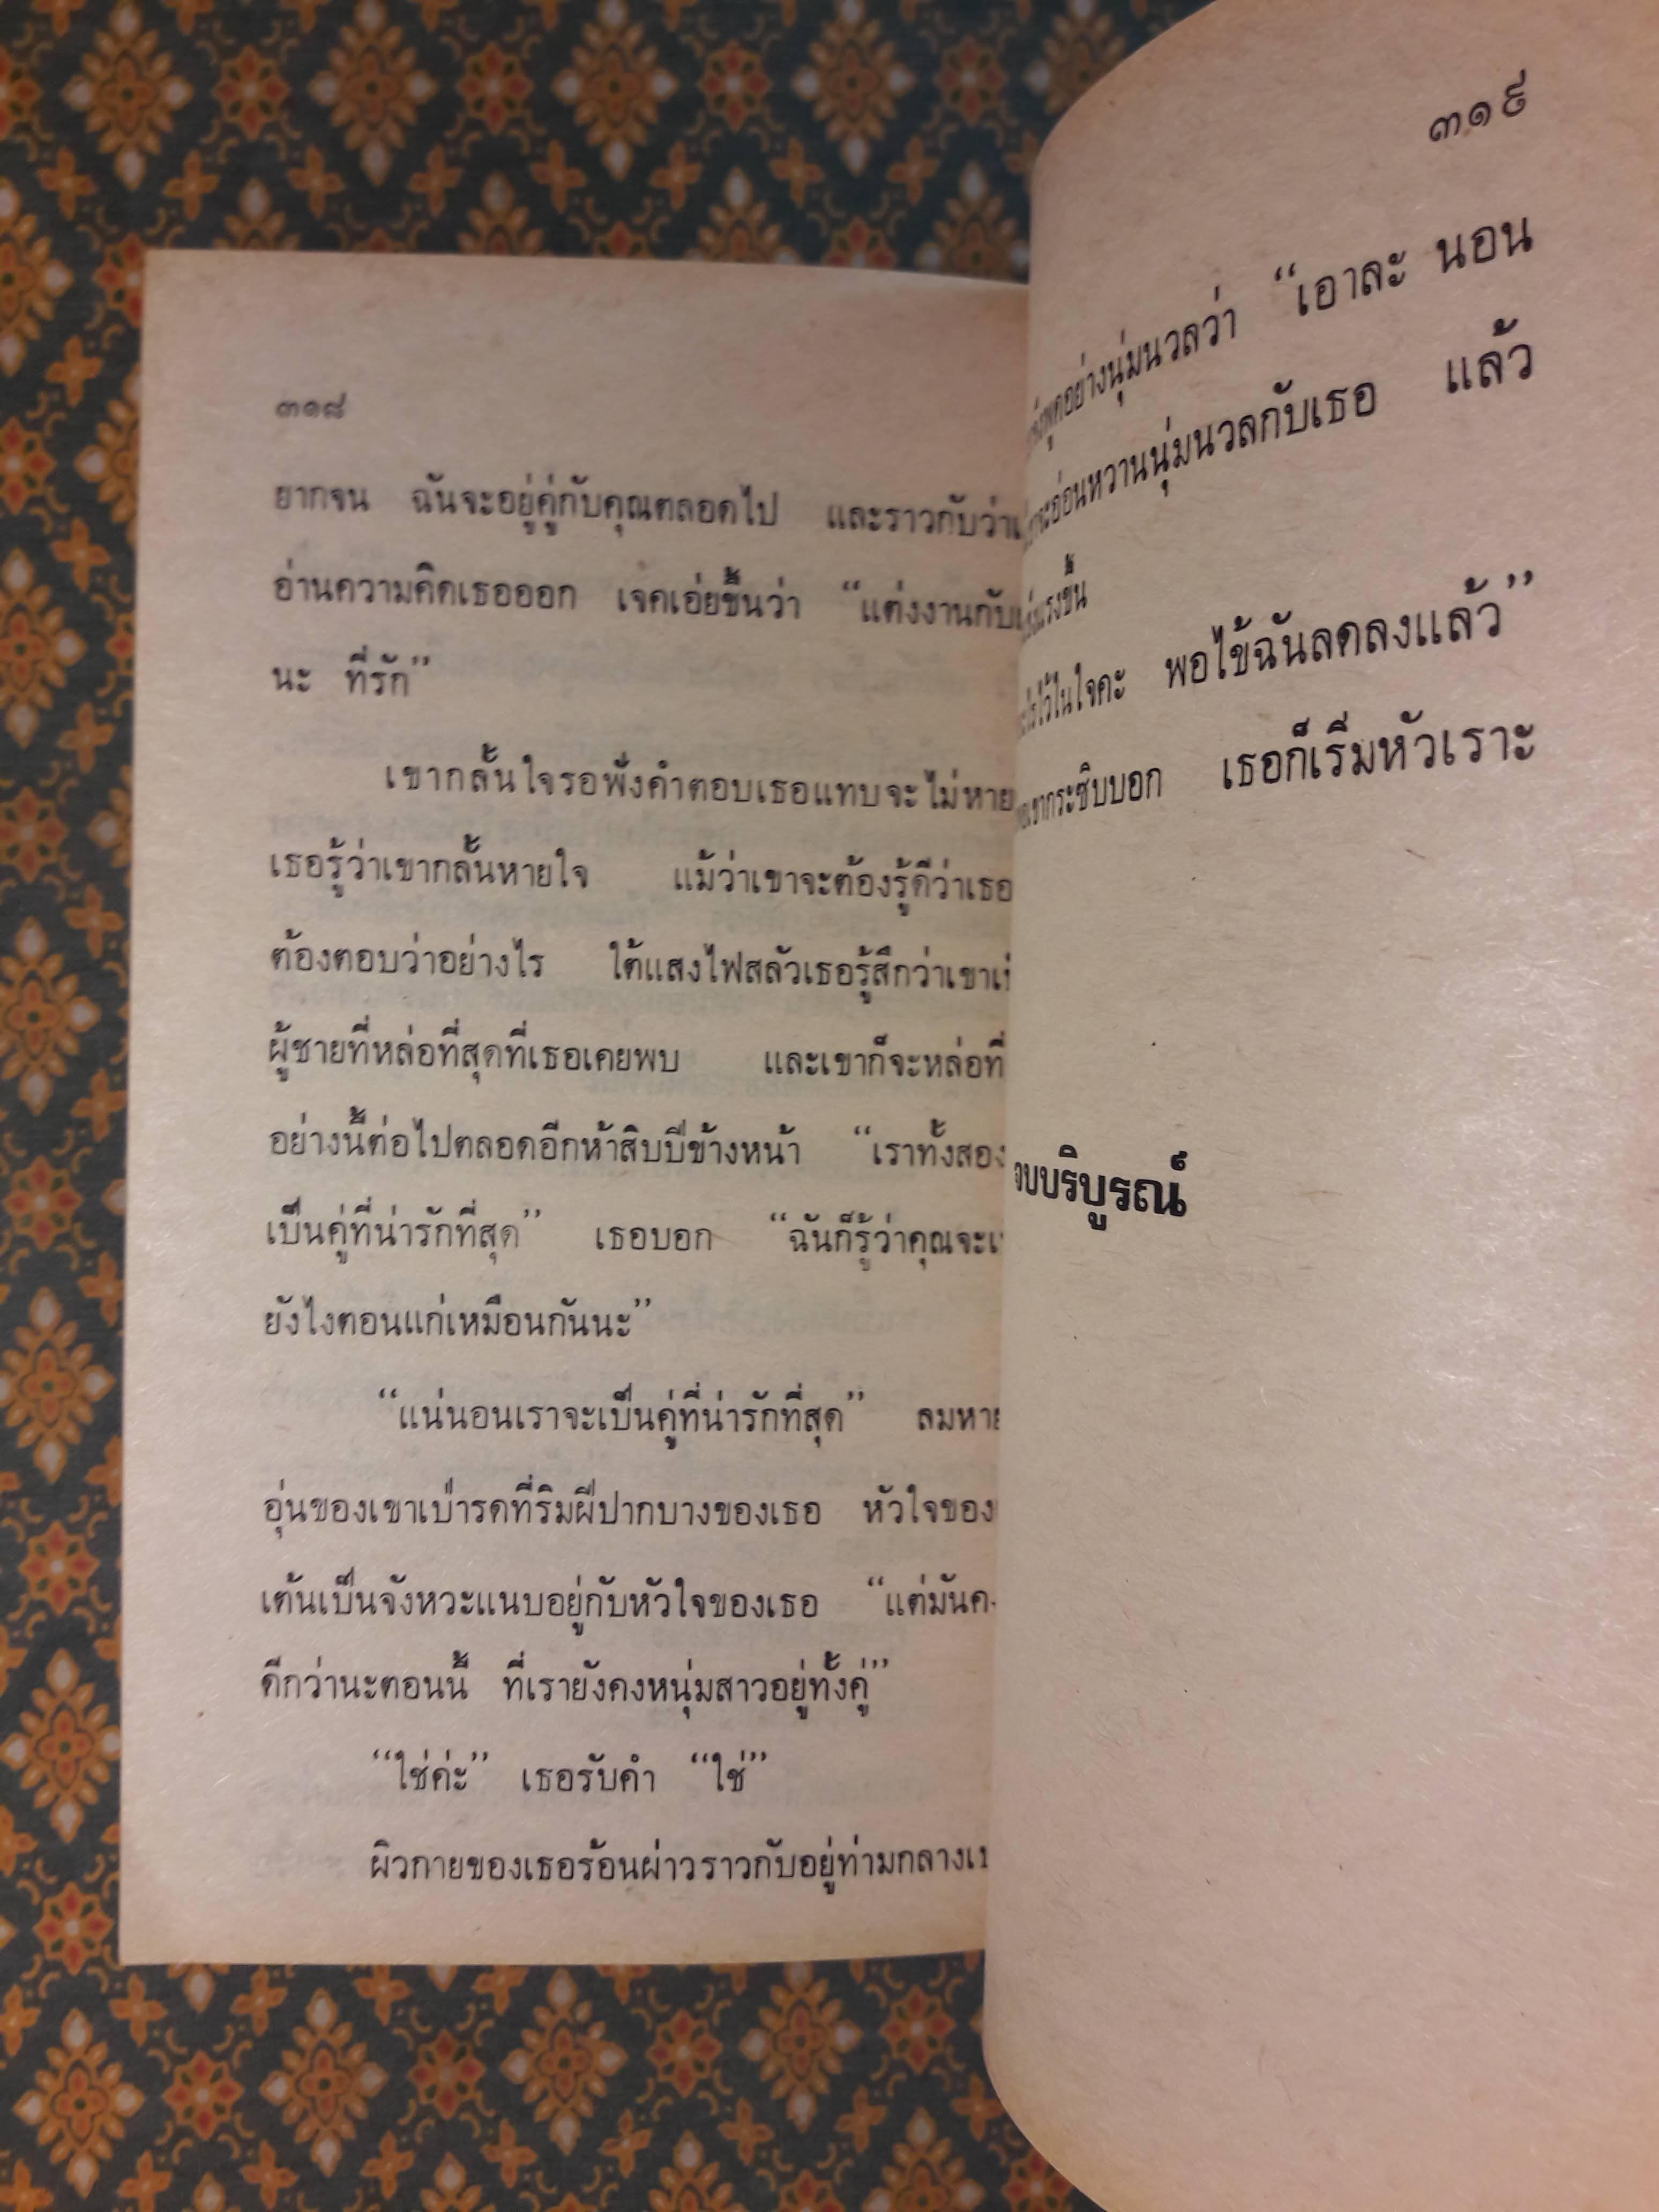 ๓๑๘
ยากจน ฉันจะอยู่คู่กับคุณตลอดไป และราวกับว่า
อ่านความคิดเธอออก เจคเอ่ยขึ้นว่า “แต่งงานกับ
นะ ที่รัก”
เขากลั้นใจรอฟังคำตอบเธอแทบจะไม่หาย
เธอรู้ว่าเขากลั้นหายใจ แม้ว่าเขาจะต้องรู้ดีว่าเธอ
ต้องตอบว่าอย่างไร ใต้แสงไฟสลัวเธอรู้สึกว่าเขา
ผู้ชายที่หล่อที่สุดที่เธอเคยพบ และเขาก็จะหล่อที่
อย่างนี้ต่อไปตลอดอีกห้าสิบปีข้างหน้า “เราทั้งสอง
เป็นคู่ที่น่ารักที่สุด” เธอบอก “ฉันก็รู้ว่าคุณจะ
ยังไงตอนแก่เหมือนกันนะ”
“แน่นอนเราจะเป็นคู่ที่น่ารักที่สุด” ลมหาย
อุ่นของเขาเป่ารดที่ริมฝีปากบางของเธอ หัวใจของ
เต้นเป็นจังหวะแนบอยู่กับหัวใจของเธอ “แต่มัน
ดีกว่านะตอนนี้ ที่เรายังคงหนุ่มสาวอยู่ทั้งคู่”
“ใช่ค่ะ” เธอรับคำ “ใช่”
ผิวกายของเธอร้อนผ่าวราวกับอยู่ท่ามกลาง
๓๑๙
พูดอย่างนุ่มนวลว่า “เอาละ นอน
อ่อนหวานนุ่มนวลกับเธอ แล้ว
แรงขึ้น
ไว้ในใจคะ พอไข้ฉันลดลงแล้ว”
เขากระซิบบอก เธอก็เริ่มหัวเราะ
จบบริบูรณ์